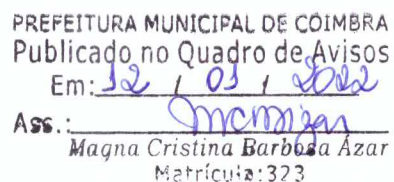 PREFEITURA MUNICIPAL DE COIMBRA
Publicado no Quadro de Avisos
Em: 12 / 01 / 2022
Ass.:
Magna Cristina Barbosa Azar
Matrícula:323